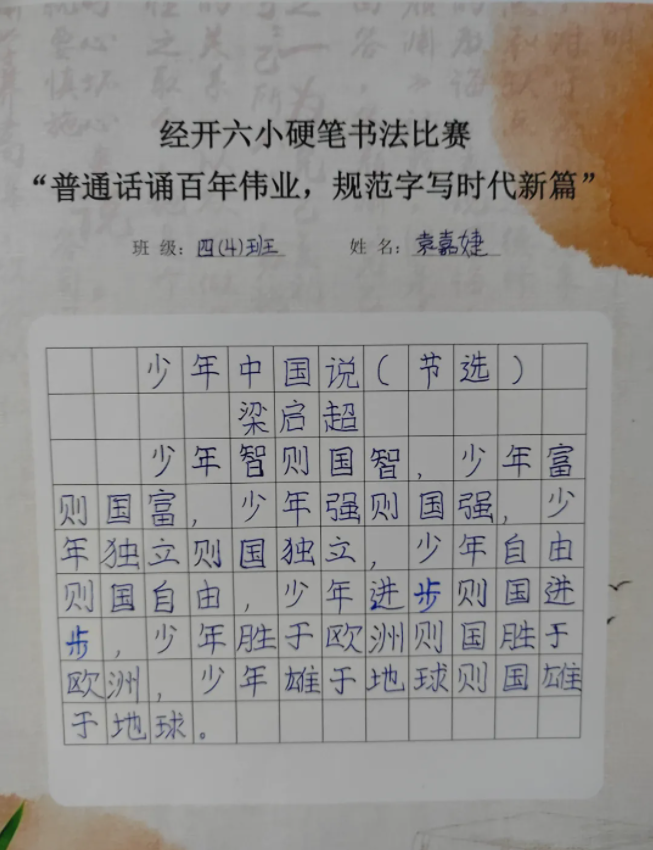 经开六小硬笔书法比赛
“普通话诵百年伟业，规范字写时代新篇”
班 级：四(4)班 姓 名：袁嘉婕
少年中国说(节选)
梁启超
少年智则国智，少年富
则国富，少年强则国强，少
年独立则国独立，少年自由
则国自由，少年进步则国进
步，少年胜于欧洲则国胜于
欧洲，少年雄于地球则国雄
于地球。